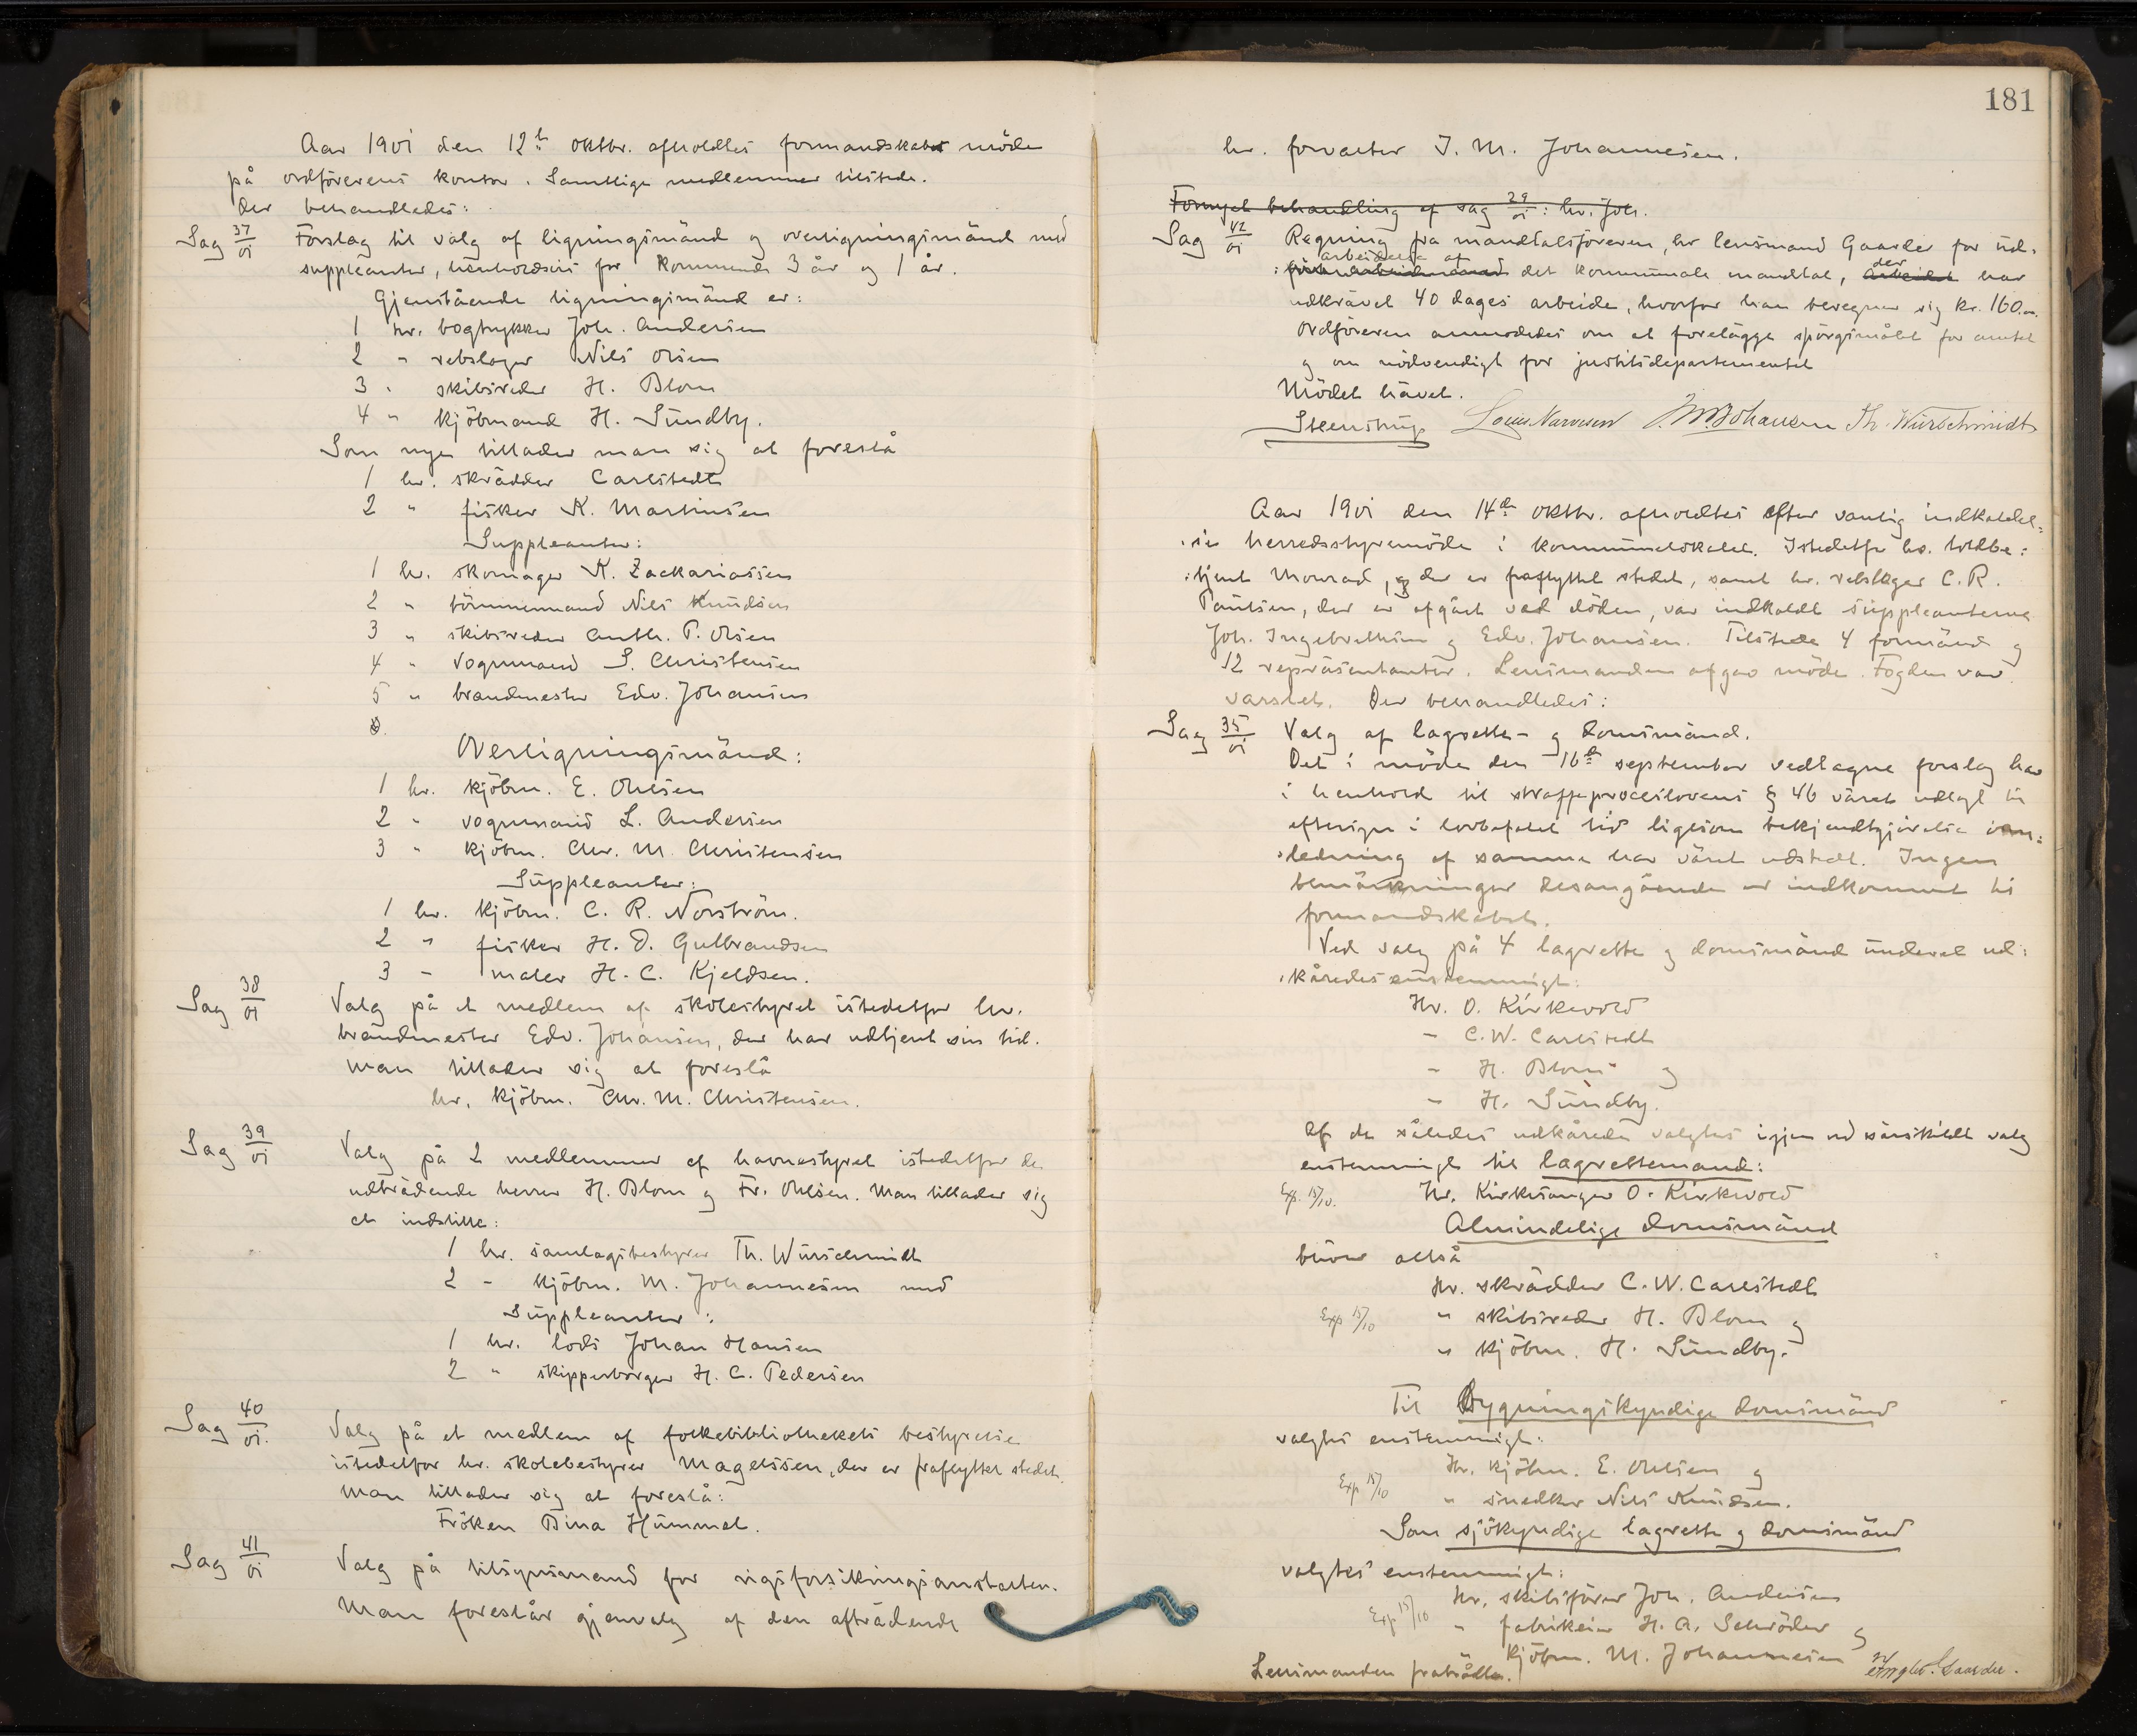 Aar 1901 den 12te oktbr. afholdtes formandskabet möde
på ordförerens kontor. Samtlige medlemmer tilstede.
Der behandledes:
Sag 37/01 Forslag til valg af ligningsmänd og overligningsmänd med
suppleanter, henholdsvis for kommende 3 år og 1 år.
Gjenstående ligningsmänd er:
1 hr. bogtrykker Joh. Andersen
2 " rebslager Nils Olsen
3 " skibsreder H. Blom
4 " kjöbmand H. Sundby.
Som nye tillader man sig at foreslå
1 hr. skrädder Carlstedt
2 " fisker K. Martinsen
Suppleanter:
1 hr. skomager K. Zackariassen
2 " tömmermand Nils Knudsen
3 " skibsreder Anth. P. Olsen
4 " vognmand S. Christensen
5 " brandmester Edv. Johansen
Overligningsmänd:
1 hr. kjöbm. E. Ohlsen
2 " vognmand L. Andersen
3 " kjöbm. Chr. M. Christensen
Suppleanter:
1 hr. kjöbm. C. R. Norström.
2 " fisker H. O. Gulbrandsen
3 - maler H. C. Kjeldsen.
Sag 38/01 Valg på et medlem af skolestyret istedetfor hr.
brandmester Edv. Johansen, der har udtjent sin tid.
Man tillader sig at foreslå
hr. kjöbm. Chr. M. Christensen.
Sag 39/01 Valg på 2 medlemmer af havnestyret istedetfor de
udträdende herrer H. Blom og Fr. Ohlsen. Man tillader sig
at indstille:
1 hr. samlagsbestyrer Th. Würschmidt
2 - kjöbm. M. Johannesen med
Suppleanter:
1 hr. lods Johan Hansen
2 " skipperborger H. C. Pedersen
Sag 40/01. Valg på et medlem af folkebibliothekets bestyrelse
istedetfor hr. skolebestyrer Magelssen, der er fraflyttet stedet.
Man tillader sig at foreslå:
Fröken Bina Hummel.
Sag 41/01 Valg på tilsynsmand for rigsforsikringsanstalten.
Man foreslår gjenvalg af den afträdende
181
hr. forvalter J. M. Johannesen.
Fornyet behandling af sag 39/01: hr. Joh.
Sag 42/01 Regning fra mandtalsföreren, hr lensmand Gaarder for ud-
arbeidelse af det kommunale mandtal, der har
udkrävet 40 dages arbeide, hvorfor han beregner sig kr. 160.00.
Ordföreren anmodedes om at forelägge spörgsmålet for amtet
og om nödvendigt for justitsdepartementet
Mödet hävet.
Steenstrup Louis Narvesen J. M. Johansen Th. Würschmidt
Aar 1901 den 14de oktbr. afholdtes efter vanlig indkaldel-
se herredsstyremöde i kommunelokalet. Istedetfor hr. toldbe-
tjent Monrad, der er fraflyttet stedet, samt hr. rebslager C. R.
Paulsen, der er afgået ved döden, var indkaldt suppleanterne
Joh. Ingebrethsen og Edv. Johansen. Tilstede 4 formänd og
12 repräsentanter. Lensmanden afgav möde. Fogden var
varslet. Der behandledes:
Sag 35/01 Valg af lagrette- og domsmänd.
Det i möde den 16de september vedtagne forslag har
i henhold til straffeproceslovens § 46 väret udlagt til
eftersyn i lovbefalet tid ligesom bekjendtgjörelse i an-
ledning af samme har väret udstedt. Ingen
bemärkninger desangående er indkommet til
formandskabet.
Ved valg på 4 lagrette og domsmänd underet ud-
kåredes enstemmigt:
Hr. O. Kirkevold
- C. W. Carlstedt
- H. Blom og
- H. Sundby.
Af de således udkårede valgtes igjen ved särskildt valg
enstemmigt til lagrettemand:
Exp. 15/10. Hr. Kirkesanger O. Kirkevold
Almindelige domsmänd
bliver altså
Hr. skrädder C. W. Carlstedt
Exp 15/10 " skibsreder H. Blom og
" kjöbm. H. Sundby.
Til Bygningskyndige domsmänd
valgtes enstemmigt:
Hr. kjöbm. E. Ohlsen og
Exp 15/10 " snedker Nils Knudsen.
Som sjökyndige lagrette og domsmänd
valgtes enstemmigt:
Hr. skibsförer Joh. Andersen
Exp 15/10 " fabrikeier H. A. Schröder og
" kjöbm. M. Johannesen
Lensmanden fratrådte. Gaarder.